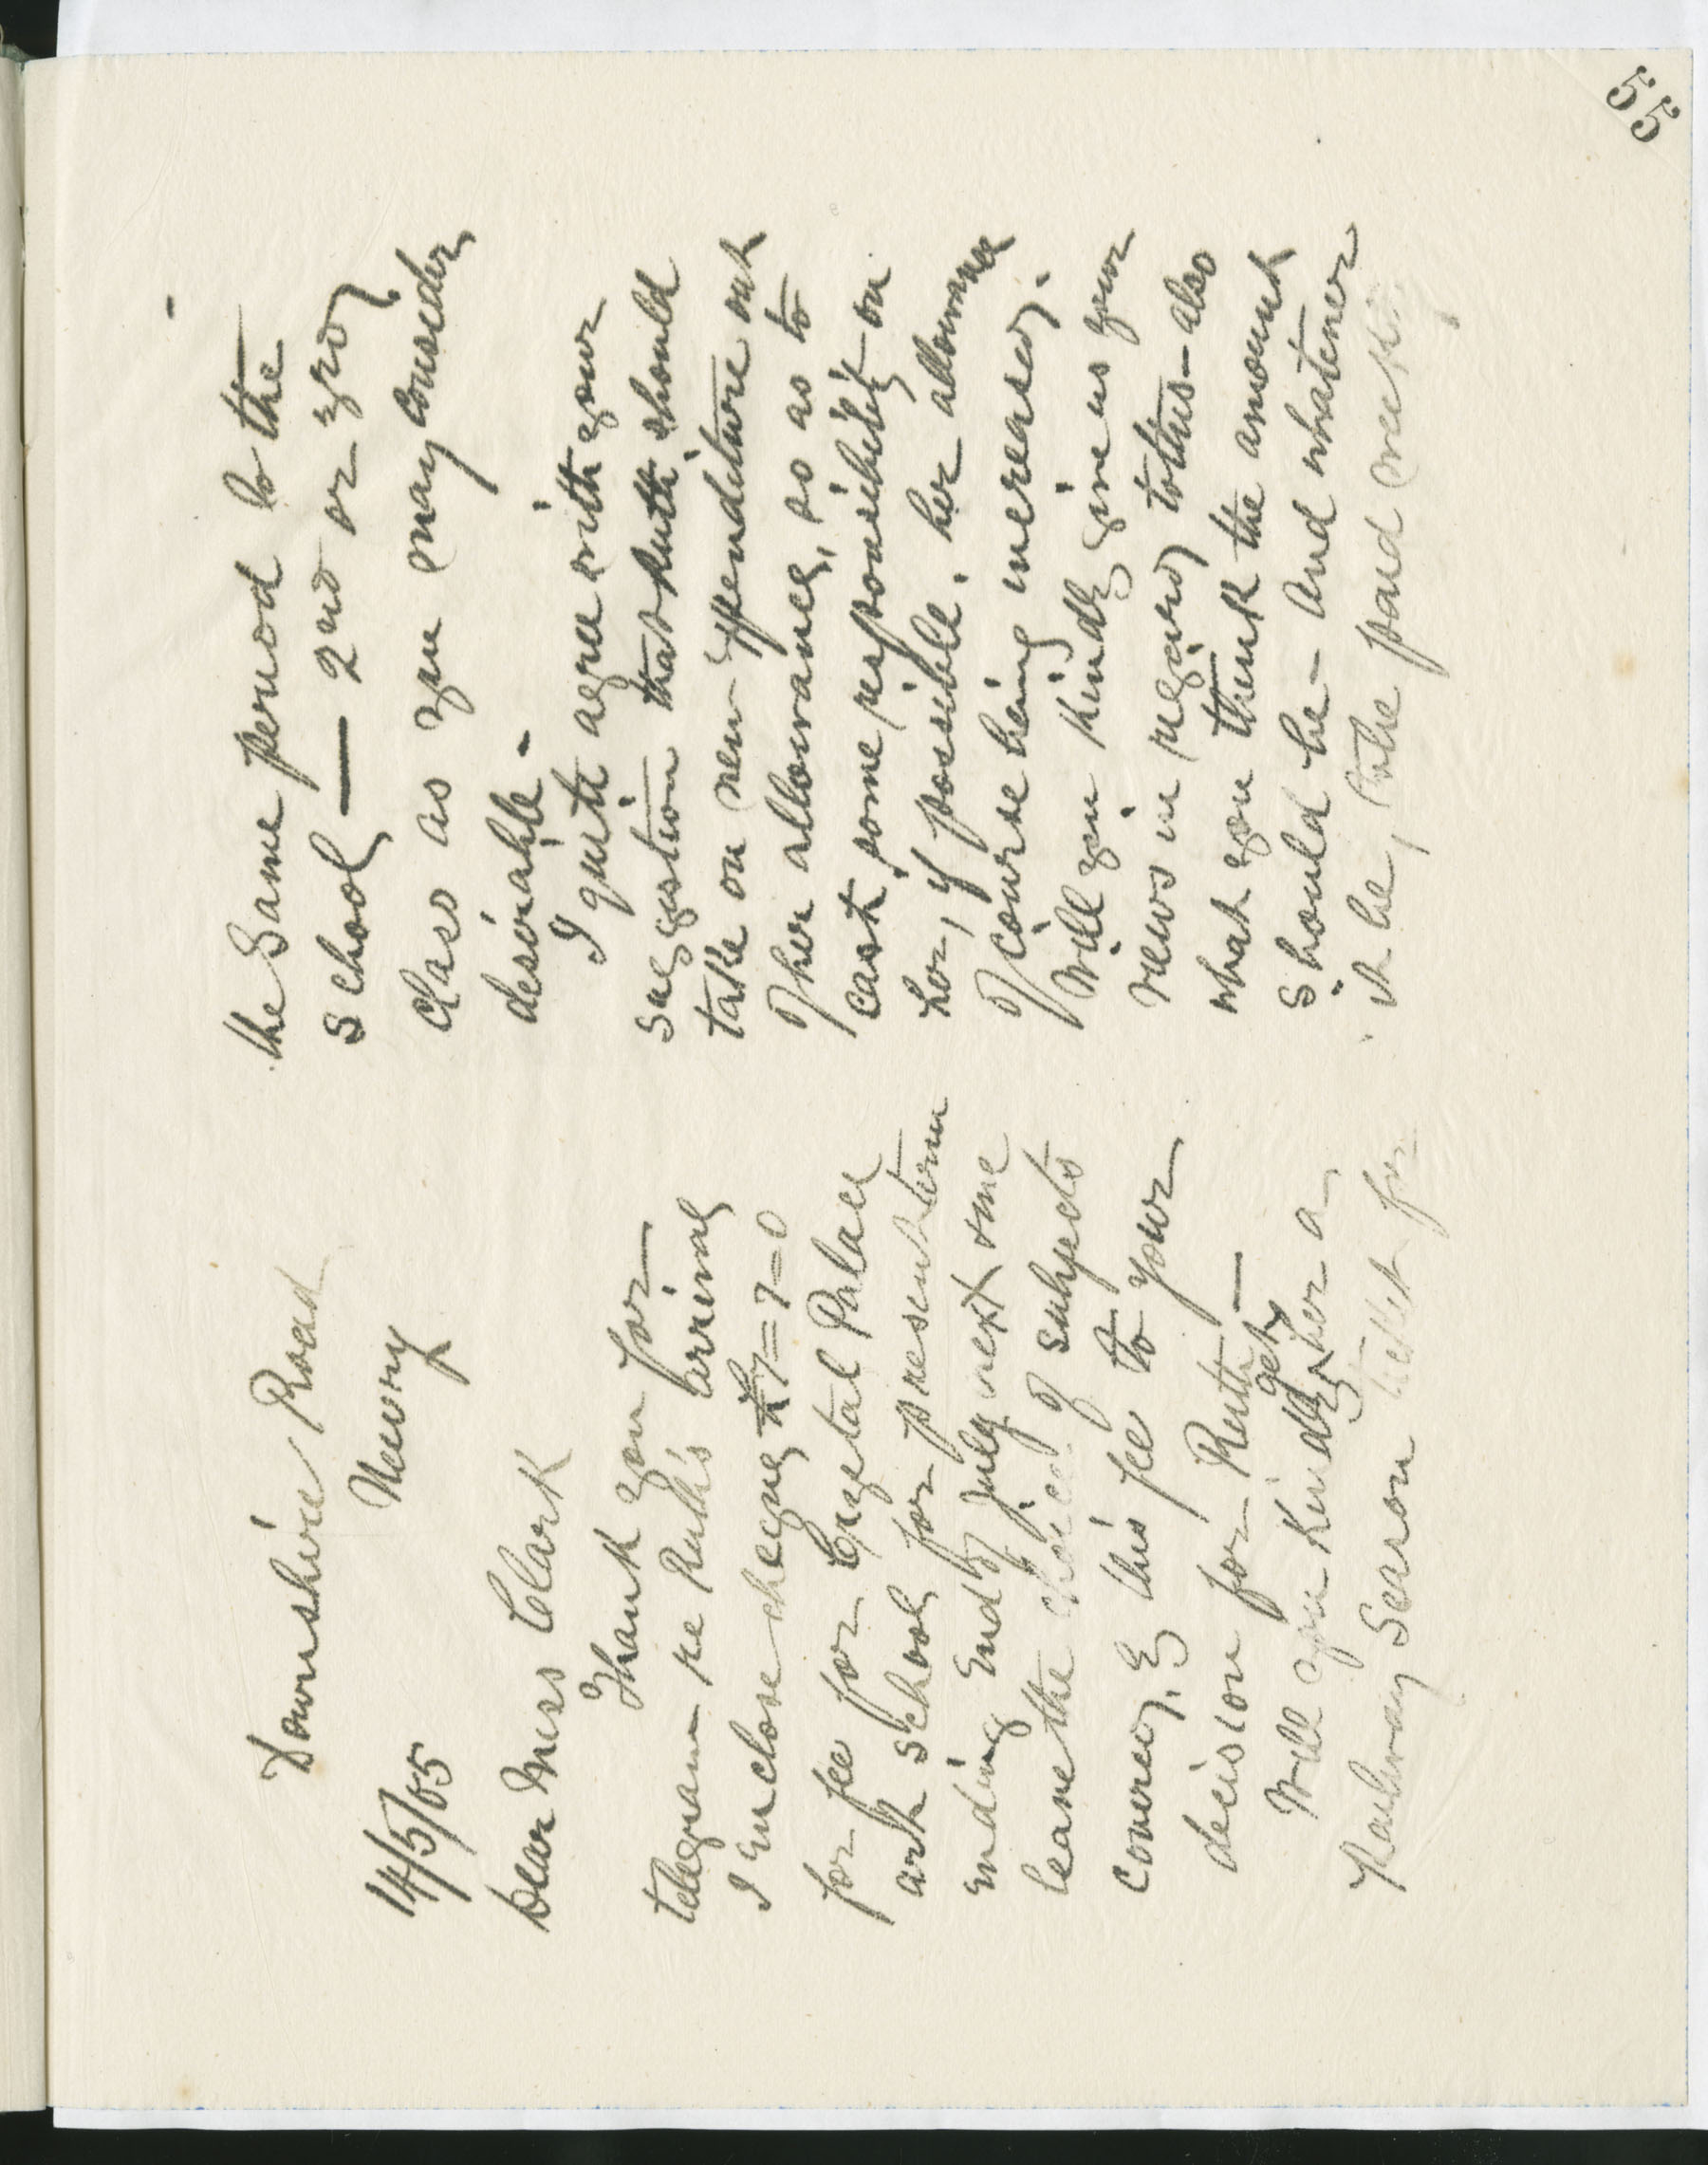 55
Downshire Road
Newry
14/5/05
Dear Miss Clark
Thank you for
telegram re Ruth's arrival
I enclose cheque £7=7=0
for fee for Crystal Palace
art school for present term
ending End of July next
leave the choice of subjects
covered by this fee to your
decision for Ruth —
Will you kindly get her a
Railway Season ticket for
the same period to the
school — 2nd or 3rd
class as you may consider
desirable -
I quite agree with your
suggestion that Ruth should
take on new expenditure out
of her allowance, so as to
cast some responsibility on
her, if possible. her allowance
of course being increased.
Will you kindly give us your
views in regard to this - also
what you think the amount
should be - And whatever
it be, to be paid weekly